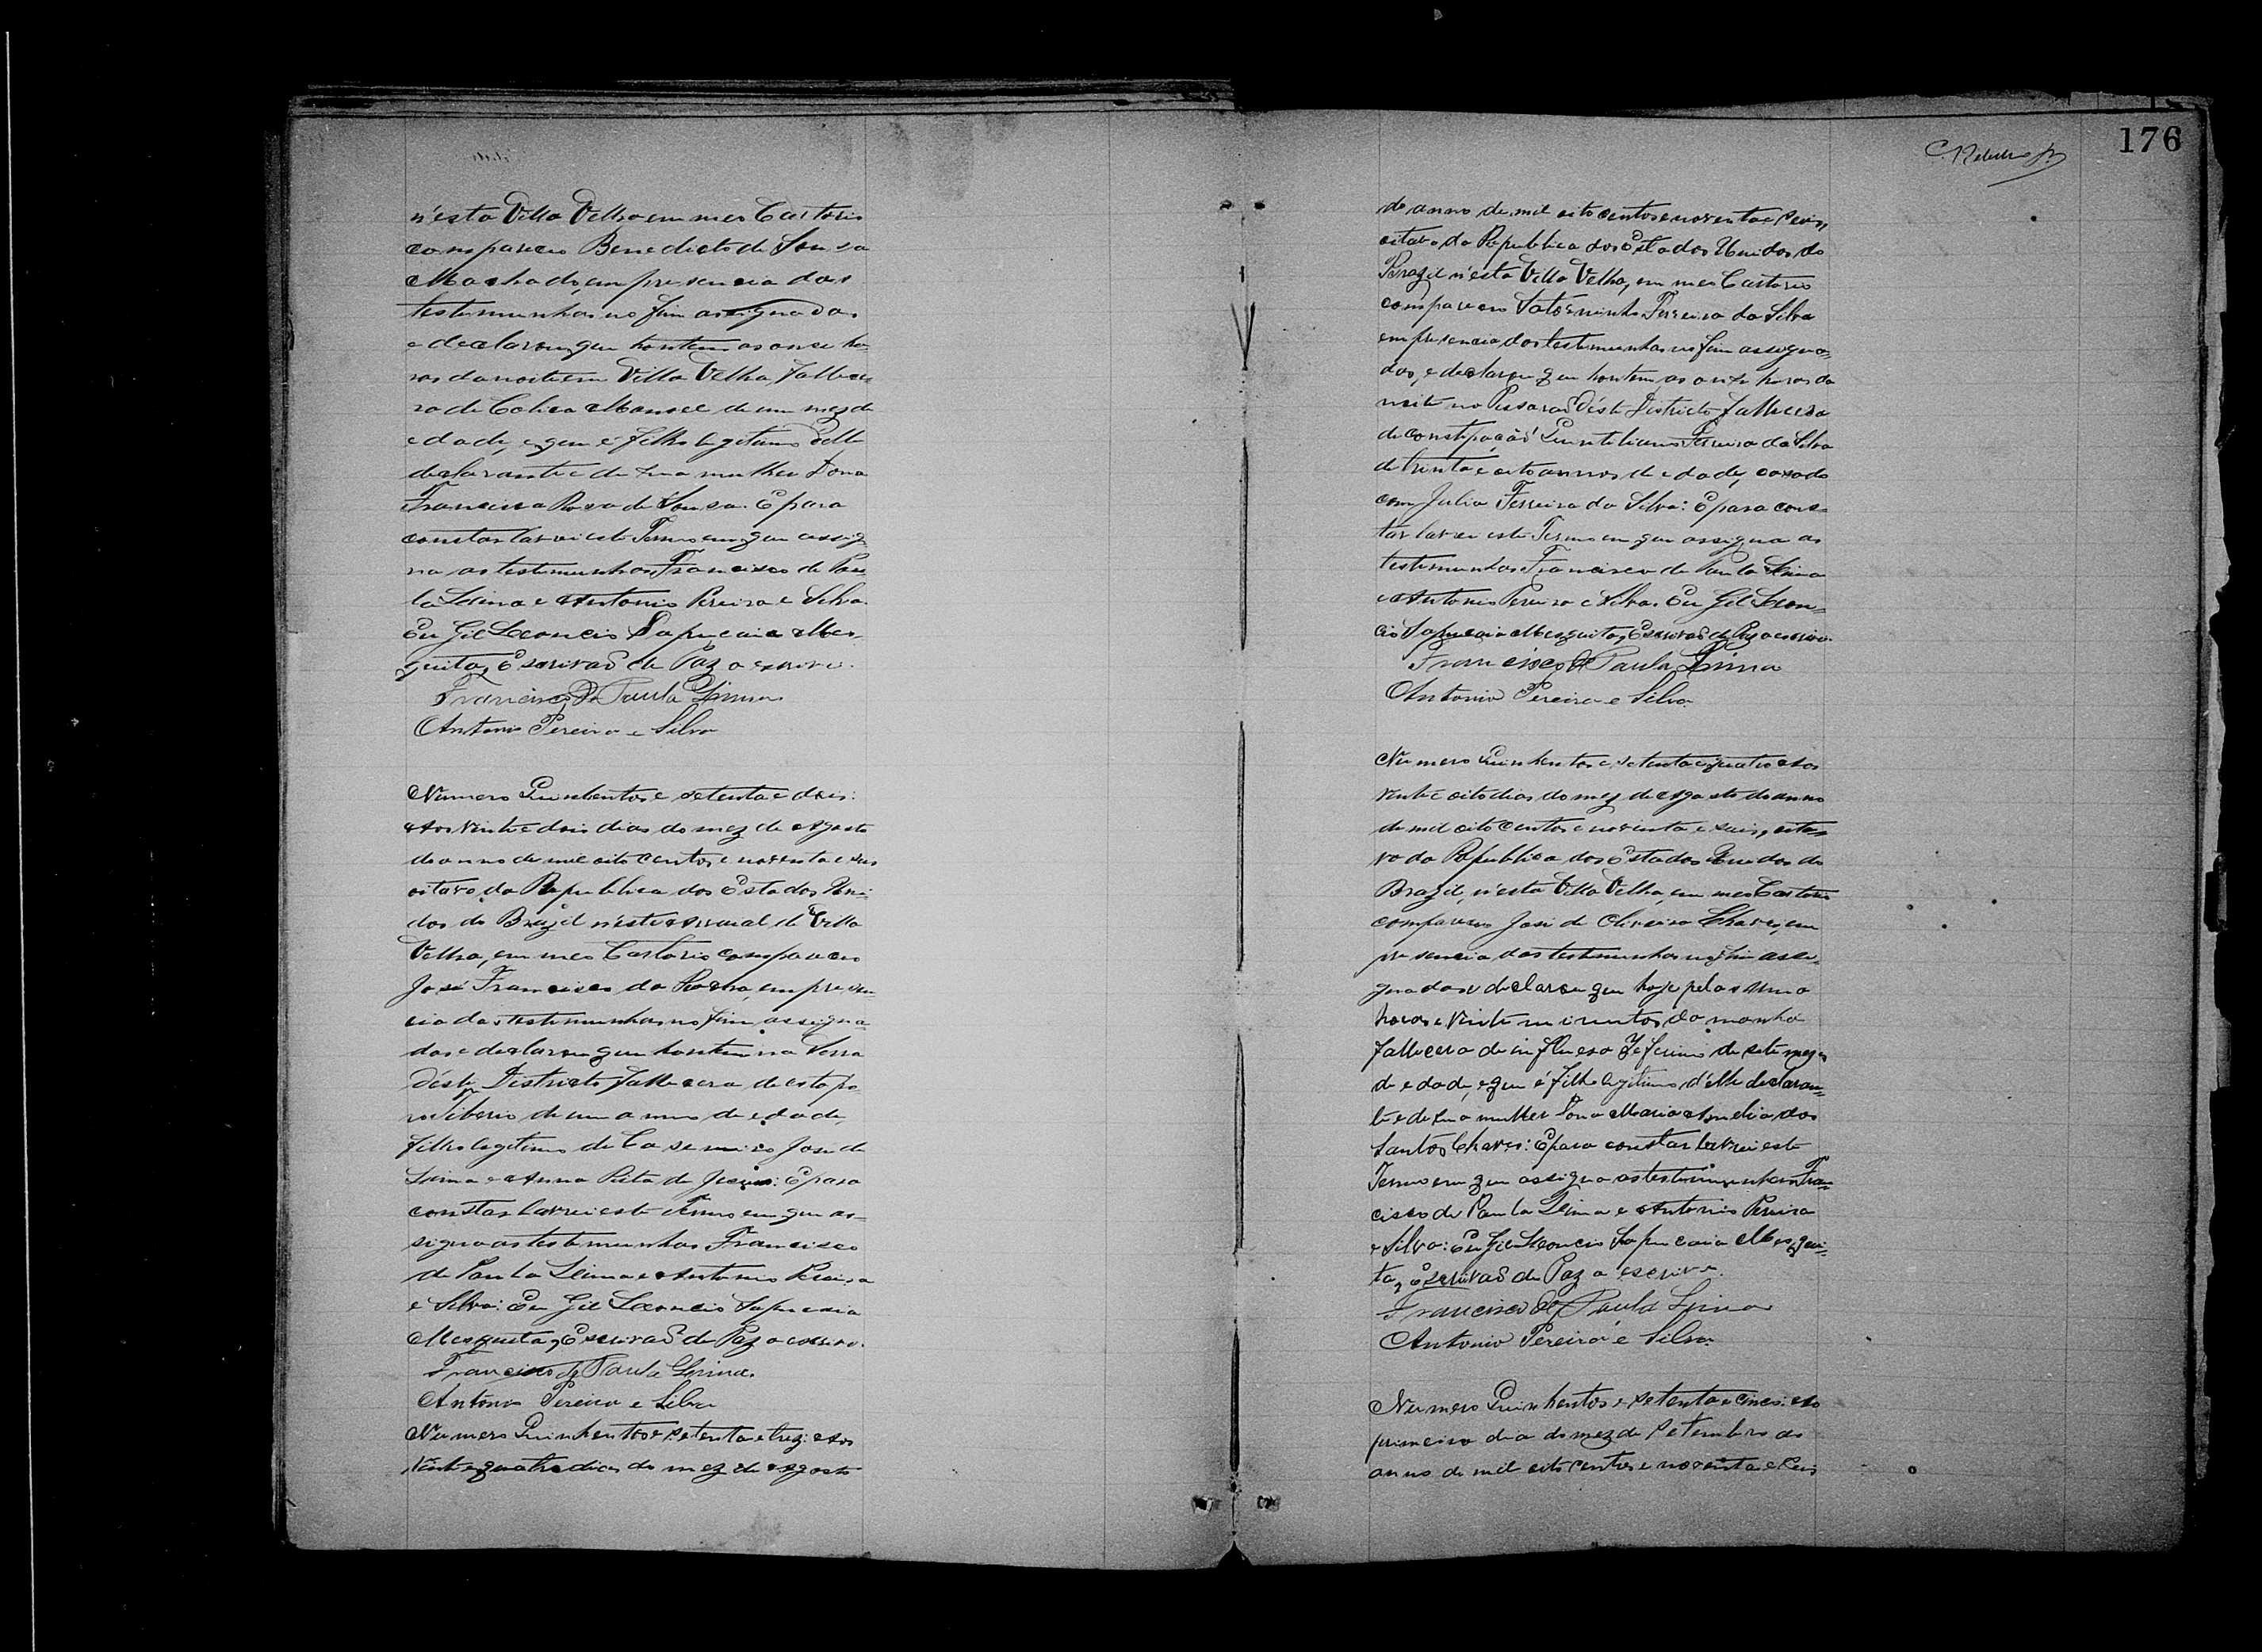 n'esta Villa Velha em meo Cartorio
compareceo Benedicto de Sousa
Machado, em presencia das
testemunhas no fim assignadas
e declarou que hontem as onse ho-
ras da noite em Villa Velha, fallece-
ra de Colica Manoel de um mez de
edade, e que é filho legitimo d'elle
declarante e de sua mulher Dona
Francisca Rosa de Sousa. E para
constar lavrei este Termo em que assig-
na as testemunhas Francisco de Pau-
la Lima e Antonio Pereira e Silva.
Eu Gil Leoncio Sapucaia Mes-
quita, Escrivaõ de Paz o escrivi.
Francisco de Paula Lima
Antonio Pereira e Silva
Numero Quinhentos e setenta e dois:
Aos vinte e dois dias do mez de Agosto
do anno de mil oito centos e noventa e seis
oitavo da Republica dos Estados Uni-
dos do Brazil n'este Arraial de Villa
Velha, em meo Cartorio compareceo
José Francisco da Rocha, em presen-
cia das testemunhas no fim assigna-
das e declarou que hontem na Serra
d'éste Districto fallecera de
Tiberio de um anno de edade,
filho legitimo de Casemiro José de
Lima e Anna Rita de Jesus: E para
constar lavrei este Termo em que as-
signa as testemunhas Francisco
de Paula Lima e Antonio Pereira
e Silva: Eu Gil Leoncio Sapucaia
Mesquita, Escrivaõ de Paz o escrivi.
Francisco de Paula Lima.
Antonio Pereira e Silva
Numero Quinhentos e setenta e trez: Aos
vinte e quatro dias do mez de Agosto
176
do anno de mil oito centos e noventa e seis,
oitavo da Republica dos Estados Unidos do
Brazil n'esta Villa Velha, em meo Cartorio
compareceo Saturninho Ferreira da Silva
em presencia das testemunhas no fim assigna-
das, e declarou que hontem, as onze horas da
noite no d'éste Districto fallecera
de constipaçaõ Quintiliano Ferreira da Silva
de trinta e oito annos de edade, casado
com Julia Ferreira da Silva: E para cons-
tar lavrei este Termo em que assigna as
testemunhas Francisco de Paula Lima
e Antonio Pereira e Silva. Eu Gil Leon-
cio Sapucaia Mesquita, Escrivaõ de Paz o escrivi.
Francisco de Paula Lima
Antonio Pereira e Silva.
Numero Quinhentos e setenta e quatro Aos
vinte e oito dias do mez de Agosto do anno
de mil oito centos e noventa e seis, oita-
vo da Republica dos Estados Unidos do
Brazil, n'esta Villa Velha, em meo Cartorio
compareceo José de Oliveira Chaves, em
presencia das testemunhas no fim assi-
gnadas e declarou que hoje pelas uma
horas e vinte minutos da manhã
fallecera de influesa Zeferino de sete mezes
de edade, e que é filho legitimo d'elle declaran-
te e de sua mulher Dona Maria Amelia dos
Santos Chaves: E para constar lavrei este
Termo em que assigna as testemunhas Fran-
cisco de Paula Lima e Antonio Pereira
e Silva: Eu Gil Leoncio Sapucaia Mesqui-
ta, Escrivaõ de Paz o escrivi.
Francisco de Paula Lima
Antonio Pereira e Silva.
Numero Quinhentos e setenta e cinco: Ao
primeiro dia do mez de Setembro do
anno de mil oito centos e noventa e seis